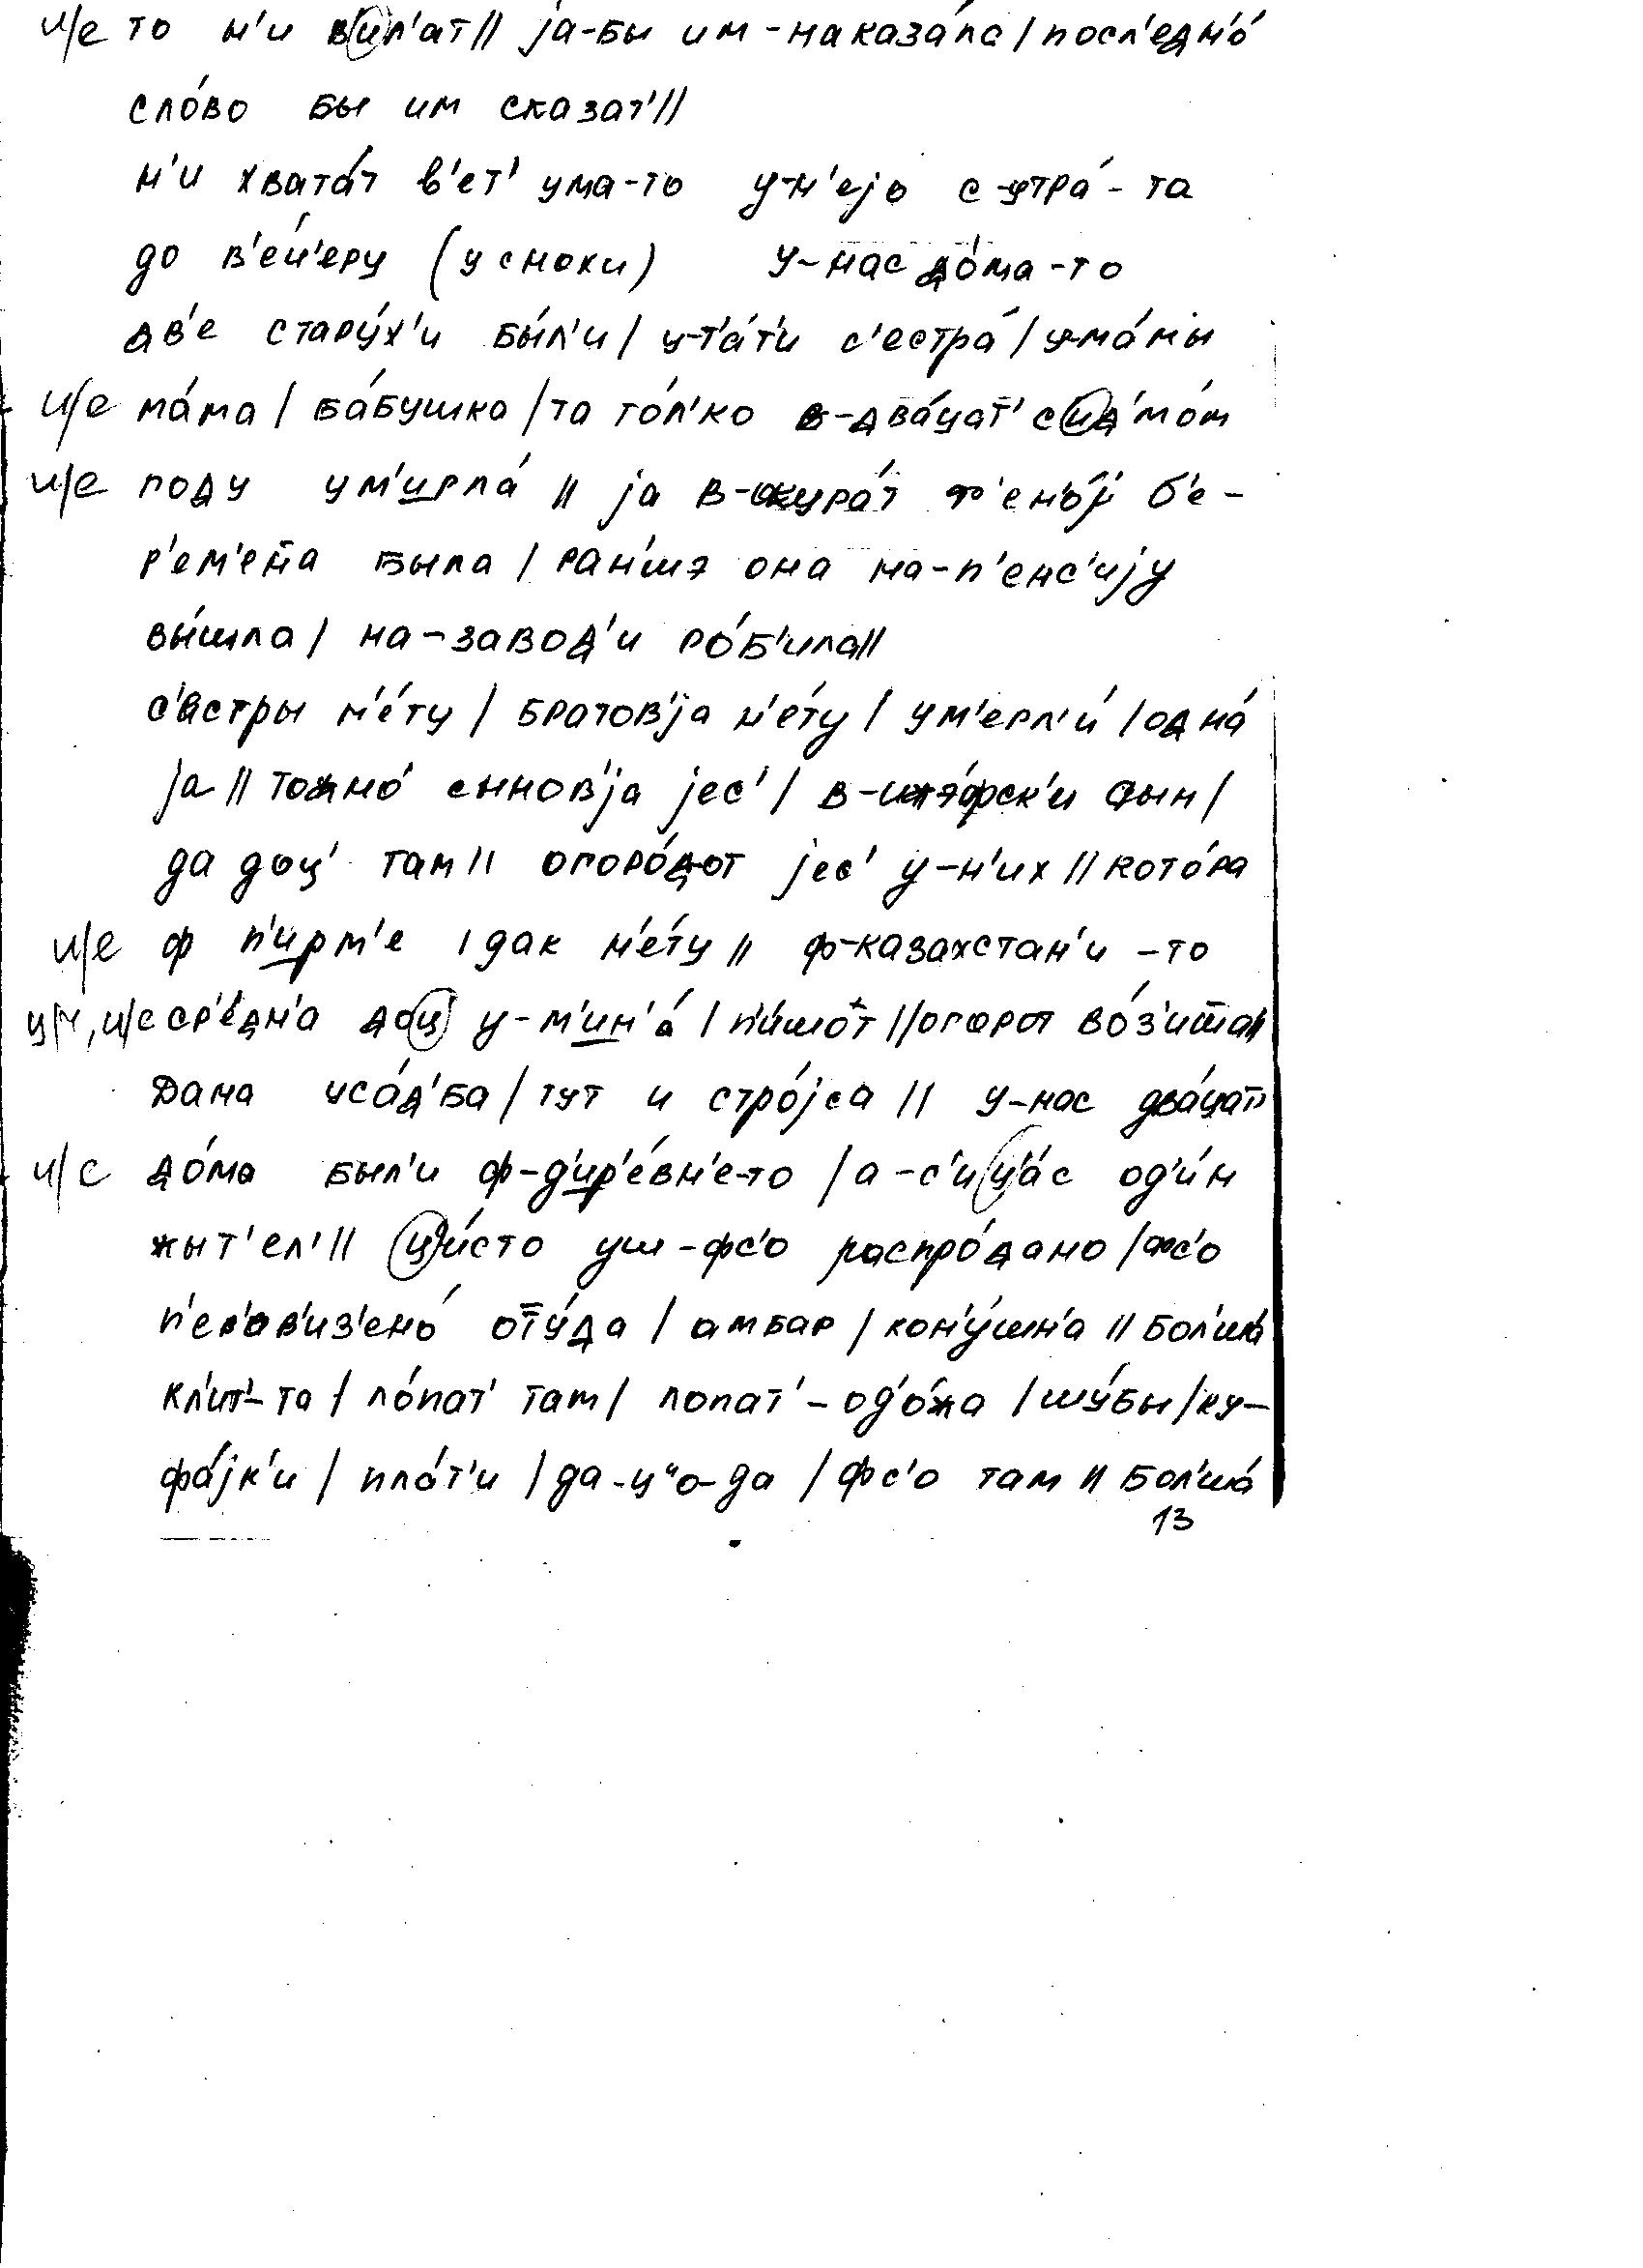 и/е то н'и вил'ат // jа-бы им-наказа́ла / посл'едн'о́
сло́во бы им сказат' //
н'и хвата́т в'ет' ума-то у-н'ејо с-утра́-та
до в'еч'еру (у снохи) у-нас до́ма-то
дв'е стару́х'и бы́л'и / у-т'а́т'и с'естра́ / у-ма́мы
и/е ма́ма / ба́бушка / та то́л'ко в-два́цат' сид'мо́м
и/е году ум'ирла́ // jа в-акура́т б'е-
р'ем'ена была / ран'шэ она на-п'енс'иjу
вы́шла / на-завод'и ро́б'ила //
с'остры н'е́ту / братов'jа н'е́ту / ум'ерл'и́ / одна́
jа // тожно́ сыновjа jес' / в-ижэ́фск'и сын /
да доц' там // огоро́дот jес' у-н'их // кото́ра
и/е ф п'ирм'е / дак н'е́ту // ф-казахстан'и-то
ц/ч, и/е ср'е́дн'а доц' у-м'ин'а́ / п'и́шот // огорот во́з'ита //
дана уса́д'ба / тут и стро́jса // у-нас два́цат'
и/е до́ма был'и ф-д'ир'е́вн'е-то / а-с'ица́с од'и́н
жыт'ел' // ц'и́сто уш-фс'о распро́дано / фс'о
п'ер'ев'из'ено́ оту́да / амбар / кон'у́шн'а // бол'ша́
кл'ит'-та / ло́пат' там / лопат'-од'о́жа / шу́бы / ку-
фа́jк'и / пла́т'и / да-ц'о-да / фс'о там // бол'ша́
13